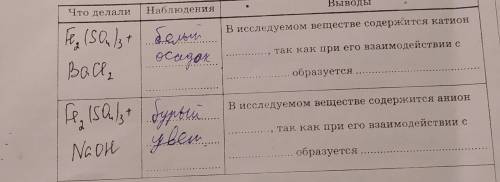 Что делали Наблюдения Выводы
Fe₂(SO₄)₃+ белый В исследуемом веществе содержится катион
BaCl₂ осадок ............, так как при его взаимодействии с
............ образуется ............
Fe₂(SO₄)₃+ бурый В исследуемом веществе содержится анион
NaOH цвет ............, так как при его взаимодействии с
............ образуется ............